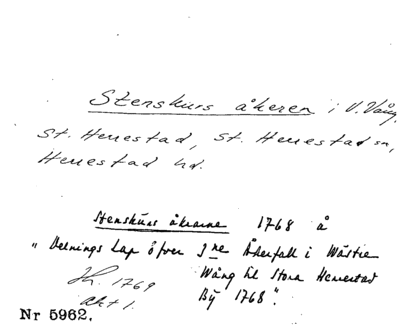 Stenskurs åkeren i V. Vång,
St. Herrestad, St. Herrestad sn,
Herrestad hd.
Stenskurs åkrarne 1768 å
"Delnings Cap öfver 3ne Åkerfall i Wästre
Wång til Stora Herrestad
By 1768".
Jh. 1769
akt 1.
Nr 5962.